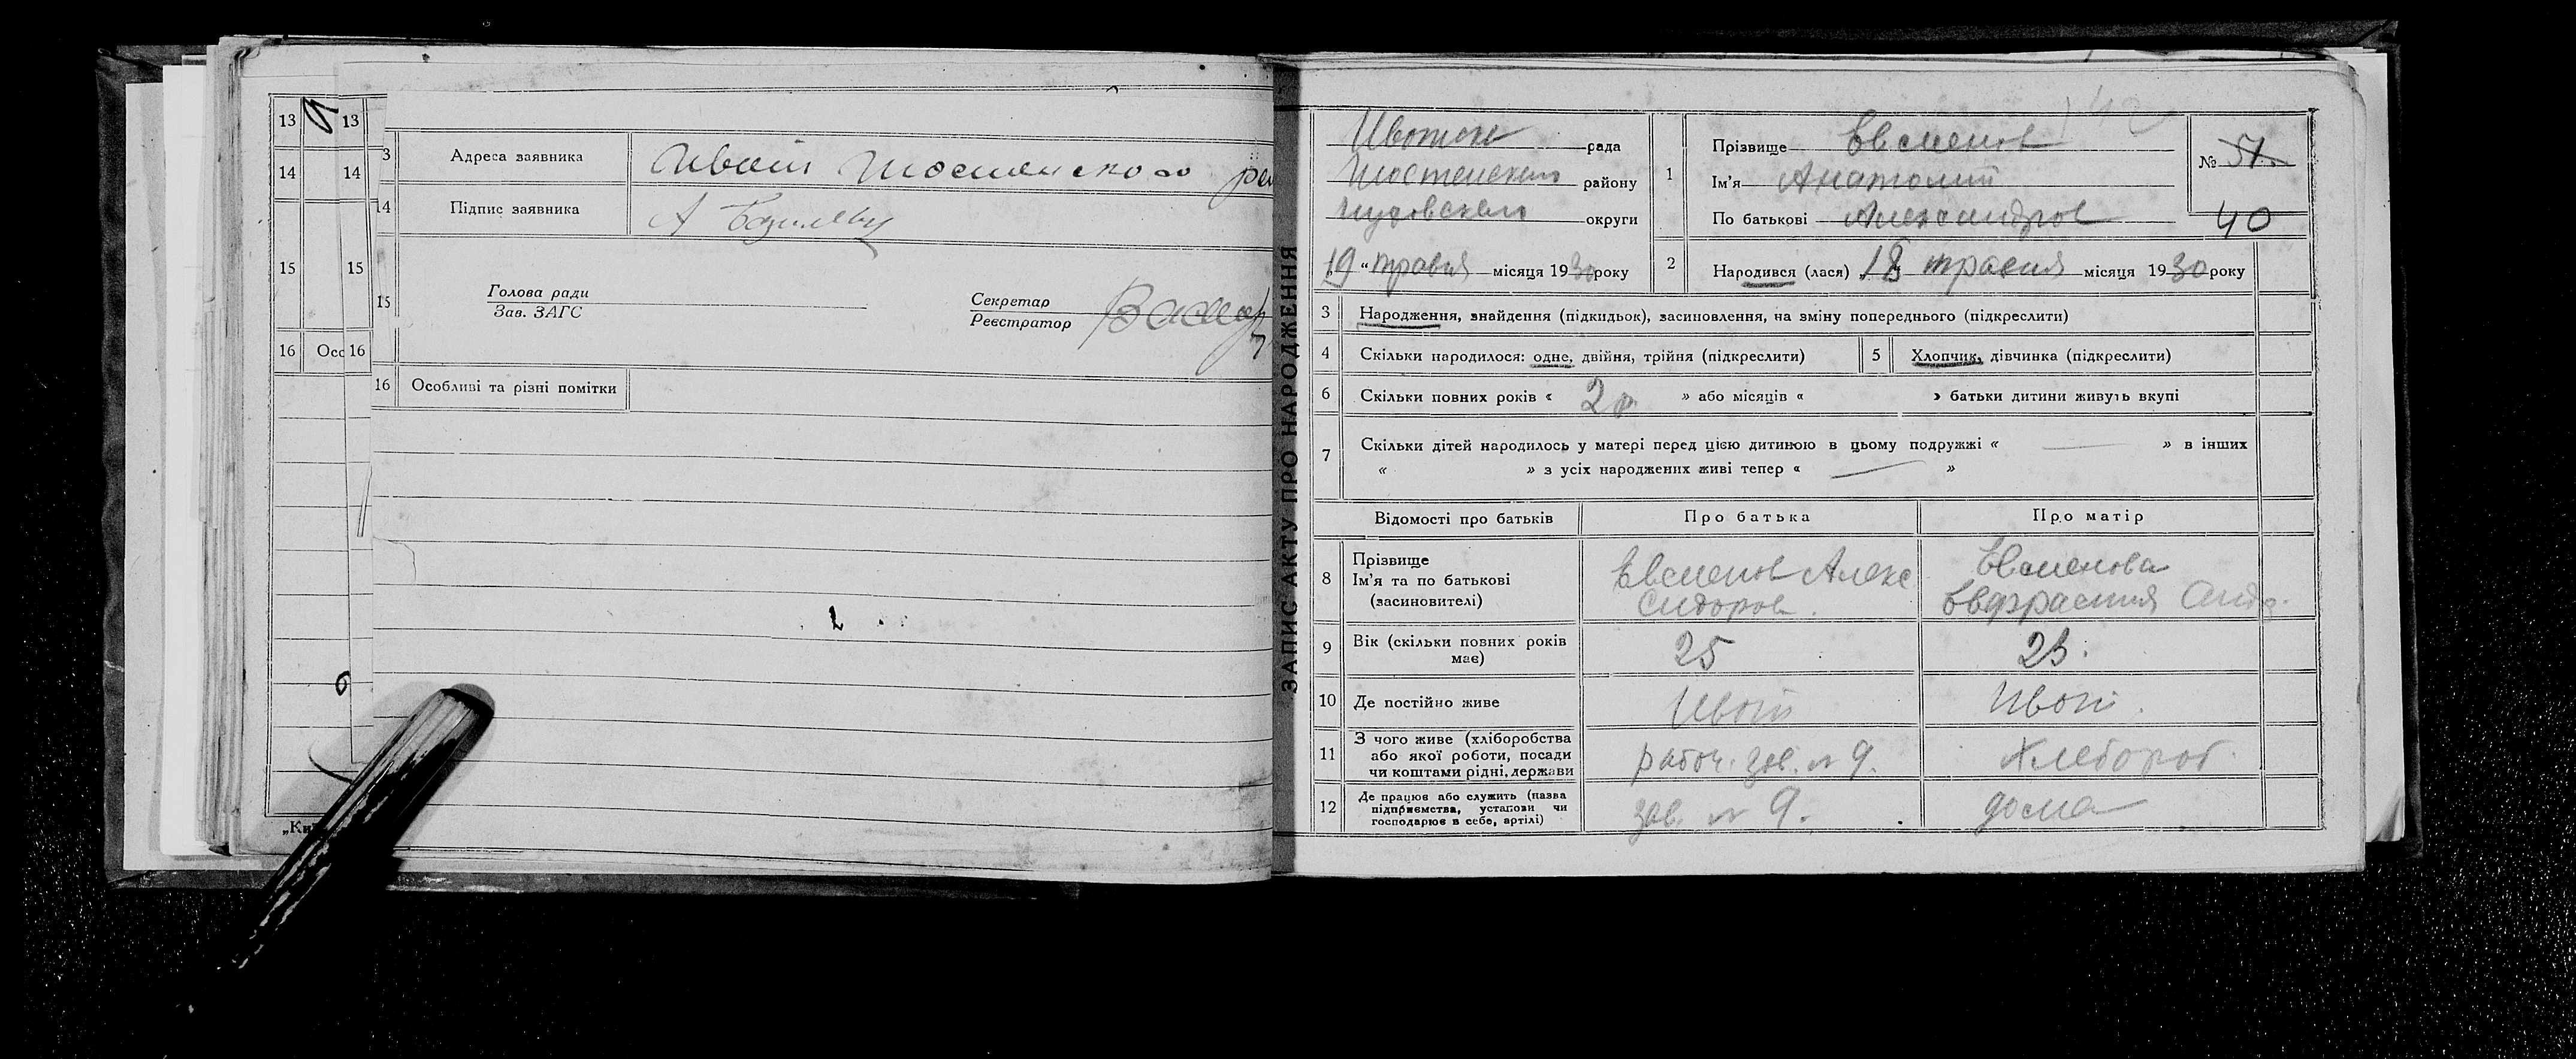 13
13
14
14
15
15
16 Осо 16
„Ки
3 Адреса заявника Ивот Шостенского
14 Підпис заявника А Базилевич
15
Голова ради
Зав. ЗАГС
Секретар
Реєстратор
16 Особливі та різні помітки
ЗАПИС АКТУ ПРО НАРОДЖЕННЯ
рада
Шостенского району
округи
19 “ травня місяця 1930 року
1 Прізвище Евсменов
Ім’я Анатолий
По батькові Александров
№ 51.
40
2 Народився (лася) 18 травня місяця 1930 року
3 Народження, знайдення (підкидьок), засиновлення, на зміну попереднього (підкреслити)
4 Скільки народилося: одне, двійня, трійня (підкреслити)
5 Хлопчик, дівчинка (підкреслити)
6 Скільки повних років « 2 р. » або місяців « » батьки дитини живуть вкупі
7 Скільки дітей народилось у матері перед цією дитиною в цьому подружжі « — » в інших
« » з усіх народжених живі тепер « — »
Відомості про батьків Про батька Про матір
8 Прізвище
Ім’я та по батькові
(засиновителі)
Евсменов Алекс
Сидоров.
Евсменова
Евфрасия Анд.
9 Вік (скільки повних років
має)
25
23.
10 Де постійно живе Ивот Ивот.
11 З чого живе (хліборобства
або якої роботи, посади
чи коштами рідні, держави
рабоч. зав. № 9.
Хлебороб.
12 Де працює або служить (назва
підприємства, установи чи
господарює в себе, артілі)
зав. № 9.
дома